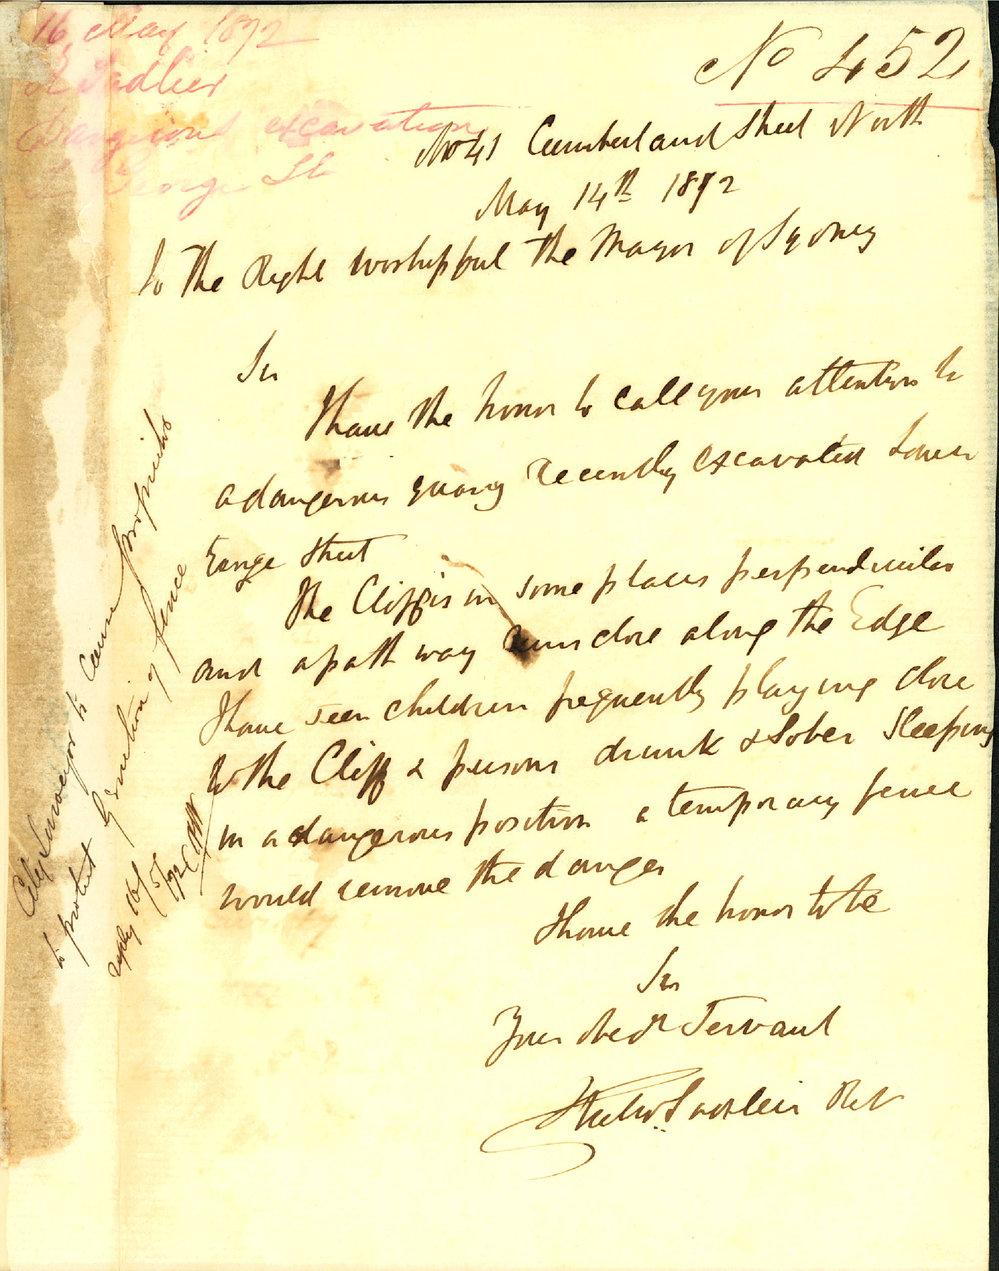 16 May 1872
Sadlier
Dangerous excavation
George St
No 452
No 41 Cumberland Street North
May 14th 1872
To the Right Worshipful the Mayor of Sydney
Sir
I have the honor to call your attention to
a dangerous quarry recently excavated Lower
George Street
The Cliff is in some places perpendicular
and a path way runs close along the Edge
I have seen children frequently playing close
to the Cliff & persons drunk & sober sleeping
in a dangerous position a temporary fence
would remove the danger
I have the honor to be
Sir
Your obedt Servant
Sadleir RN
City Surveyor to cause proprietor
to protect by erection of fence
reply 16/5/72